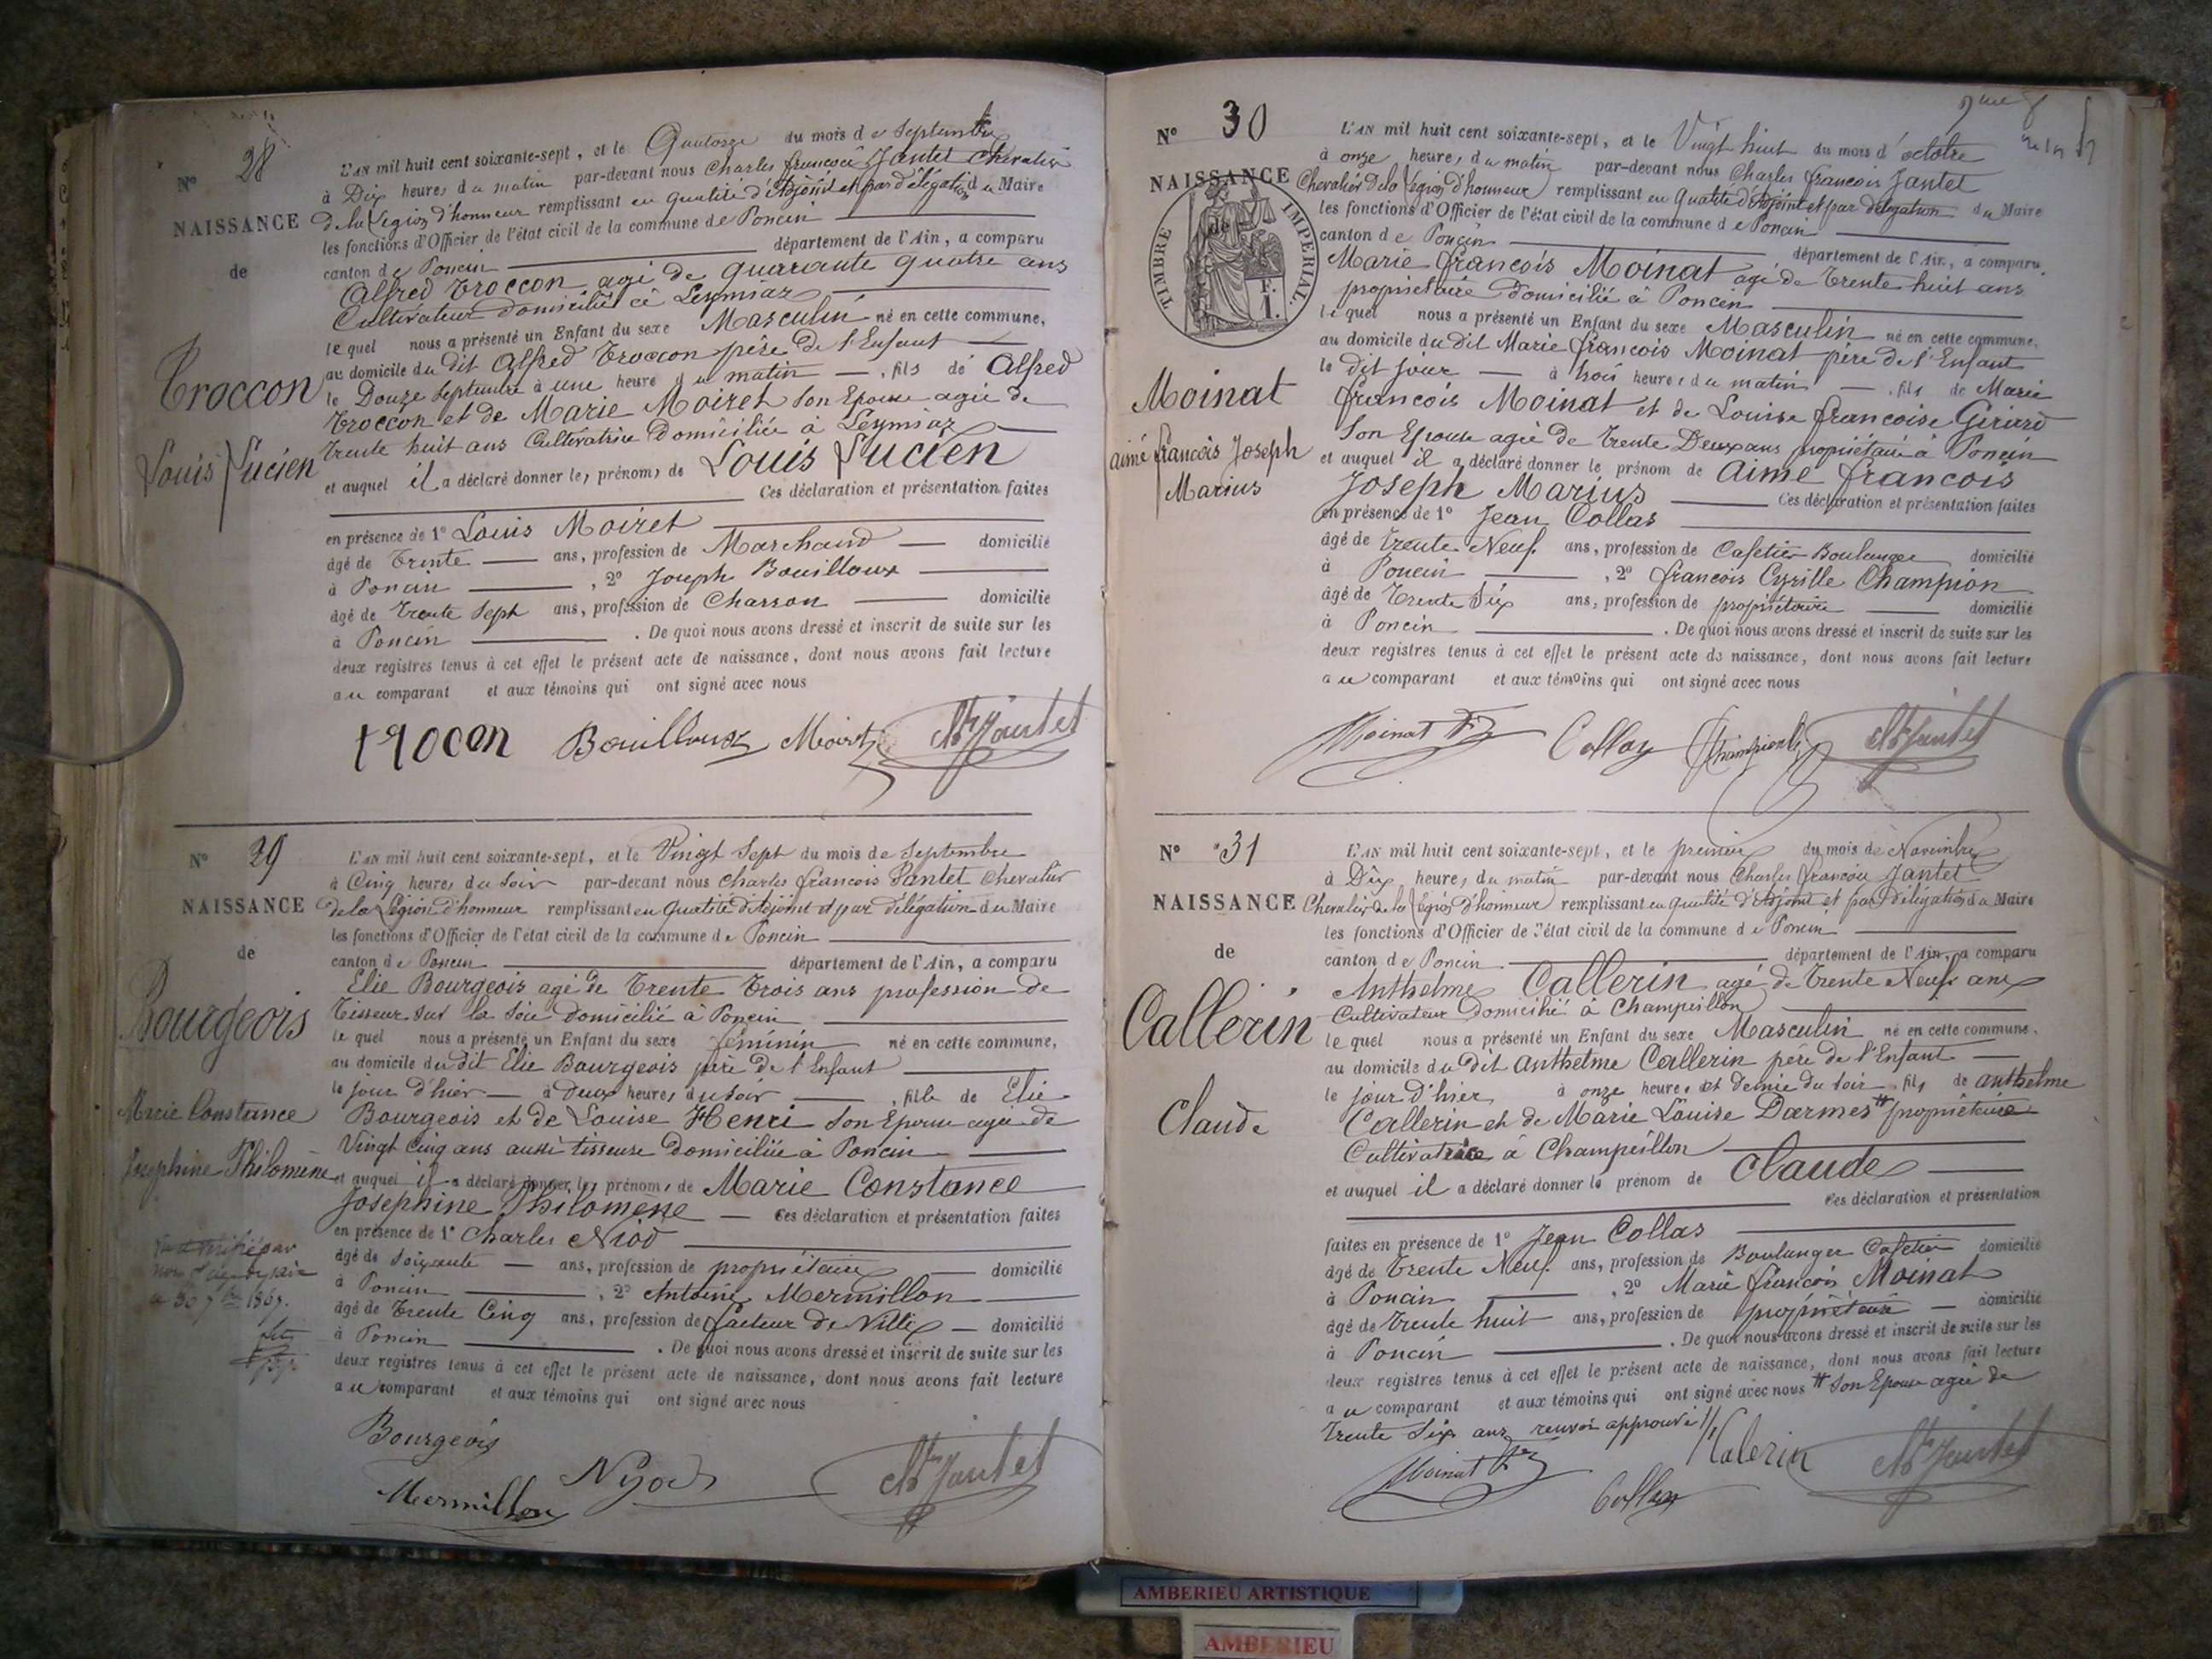 N° 28
NAISSANCE
de
Troccon
Louis Lucien
L'AN mil huit cent soixante-sept, et le Quatorze du mois de Septembre
à Dix heures du matin par-devant nous Charles francois Jantet Chevalier
de la Légion d'honneur remplissant en qualité d'Adjoint et par délégation du Maire
les fonctions d'Officier de l'état civil de la commune de Poncin
canton de Poncin département de l'Ain, a comparu
Alfred Troccon agé de quarante quatre ans
Cultivateur domicilié à Leymiaz
lequel nous a présenté un Enfant du sexe Masculin né en cette commune,
au domicile du dit Alfred Troccon père de l'Enfant
le Douze Septembre à une heure du matin, fils de Alfred
Troccon et de Marie Moiret son Epouse agée de
trente huit ans Cultivatrice Domiciliée à Leymiaz
et auquel il a déclaré donner les prénoms de Louis Lucien
Ces déclaration et présentation faites
en présence de 1° Louis Moiret
âgé de Trente ans, profession de Marchand domicilié
à Poncin, 2° Joseph Bouilloux
âgé de Trente Sept ans, profession de Charron domicilié
à Poncin. De quoi nous avons dressé et inscrit de suite sur les
deux registres tenus à cet effet le présent acte de naissance, dont nous avons fait lecture
au comparant et aux témoins qui ont signé avec nous
trocon Bouilloux Moiret Ch Jantet
N° 29
NAISSANCE
de
Bourgeois
Marie Constance
Josephine Philomène
L'AN mil huit cent soixante-sept, et le Vingt Sept du mois de Septembre
à Cinq heures du Soir par-devant nous Charles francois Jantet Chevalier
de la Légion d'honneur remplissant en qualité d'Adjoint et par délégation du Maire
les fonctions d'Officier de l'état civil de la commune de Poncin
canton de Poncin département de l'Ain, a comparu
Elie Bourgeois agé de Trente Trois ans profession de
Tisseur sur la Soie domicilié à Poncin
lequel nous a présenté un Enfant du sexe féminin né en cette commune,
au domicile du dit Elie Bourgeois père de l'Enfant
le jour d'hier à deux heures du soir, fille de Elie
Bourgeois et de Louise Henri son Epouse agée de
Vingt Cinq ans aussi tisseuse domiciliée à Poncin
et auquel il a déclaré donner les prénoms de Marie Constance
Josephine Philomène Ces déclaration et présentation faites
en présence de 1° Charles Niod
âgé de Soixante ans, profession de propriétaire domicilié
à Poncin, 2° Antoine Mermillon
âgé de Trente Cinq ans, profession de facteur de Ville domicilié
à Poncin. De quoi nous avons dressé et inscrit de suite sur les
deux registres tenus à cet effet le présent acte de naissance, dont nous avons fait lecture
au comparant et aux témoins qui ont signé avec nous
Bourgeois
Mermillon Nyod Ch Jantet
N° 30
NAISSANCE
de
TIMBRE IMPERIAL
Moinat
aimé francois Joseph
Marius
L'AN mil huit cent soixante-sept, et le Vingt huit du mois d'octobre
à onze heures du matin par-devant nous Charles francois Jantet
Chevalier de la Légion d'honneur remplissant en qualité d'Adjoint et par délégation du Maire
les fonctions d'Officier de l'état civil de la commune de Poncin
canton de Poncin département de l'Ain, a comparu
Marie francois Moinat agé de Trente huit ans
propriétaire domicilié à Poncin
lequel nous a présenté un Enfant du sexe Masculin né en cette commune,
au domicile du dit Marie francois Moinat père de l'Enfant
le dit jour à trois heures du matin, fils de Marie
francois Moinat et de Louise francoise Girard
son Epouse agée de Trente Deux ans propriétaire à Poncin
et auquel il a déclaré donner le prénom de aimé francois
Joseph Marius Ces déclaration et présentation faites
en présence de 1° Jean Collas
âgé de Trente Neuf ans, profession de Cafetier Boulanger domicilié
à Poncin, 2° francois Cyrille Champion
âgé de Trente Six ans, profession de propriétaire domicilié
à Poncin. De quoi nous avons dressé et inscrit de suite sur les
deux registres tenus à cet effet le présent acte de naissance, dont nous avons fait lecture
au comparant et aux témoins qui ont signé avec nous
Moinat Collas Champion Ch Jantet
N° 31
NAISSANCE
de
Callerin
Claude
L'AN mil huit cent soixante-sept, et le premier du mois de Novembre
à Dix heures du matin par-devant nous Charles francois Jantet
Chevalier de la Légion d'honneur remplissant en qualité d'Adjoint et par délégation du Maire
les fonctions d'Officier de l'état civil de la commune de Poncin
canton de Poncin département de l'Ain, a comparu
Anthelme Callerin agé de Trente Neuf ans
Cultivateur Domicilié à Champeillon
lequel nous a présenté un Enfant du sexe Masculin né en cette commune,
au domicile du dit Anthelme Callerin père de l'Enfant
le jour d'hier à onze heures et demie du soir, fils de anthelme
Callerin et de Marie Louise Darmes # propriétaire
Cultivatrice à Champeillon
et auquel il a déclaré donner le prénom de Claude
Ces déclaration et présentation
faites en présence de 1° Jean Collas
âgé de Trente Neuf ans, profession de Boulanger Cafetier domicilié
à Poncin, 2° Marie francois Moinat
âgé de Trente huit ans, profession de propriétaire domicilié
à Poncin. De quoi nous avons dressé et inscrit de suite sur les
deux registres tenus à cet effet le présent acte de naissance, dont nous avons fait lecture
au comparant et aux témoins qui ont signé avec nous # Son Epouse agée de
Trente Six ans renvoi approuvé
Moinat Collas Calerin Ch Jantet
AMBERIEU ARTISTIQUE
AMBERIEU